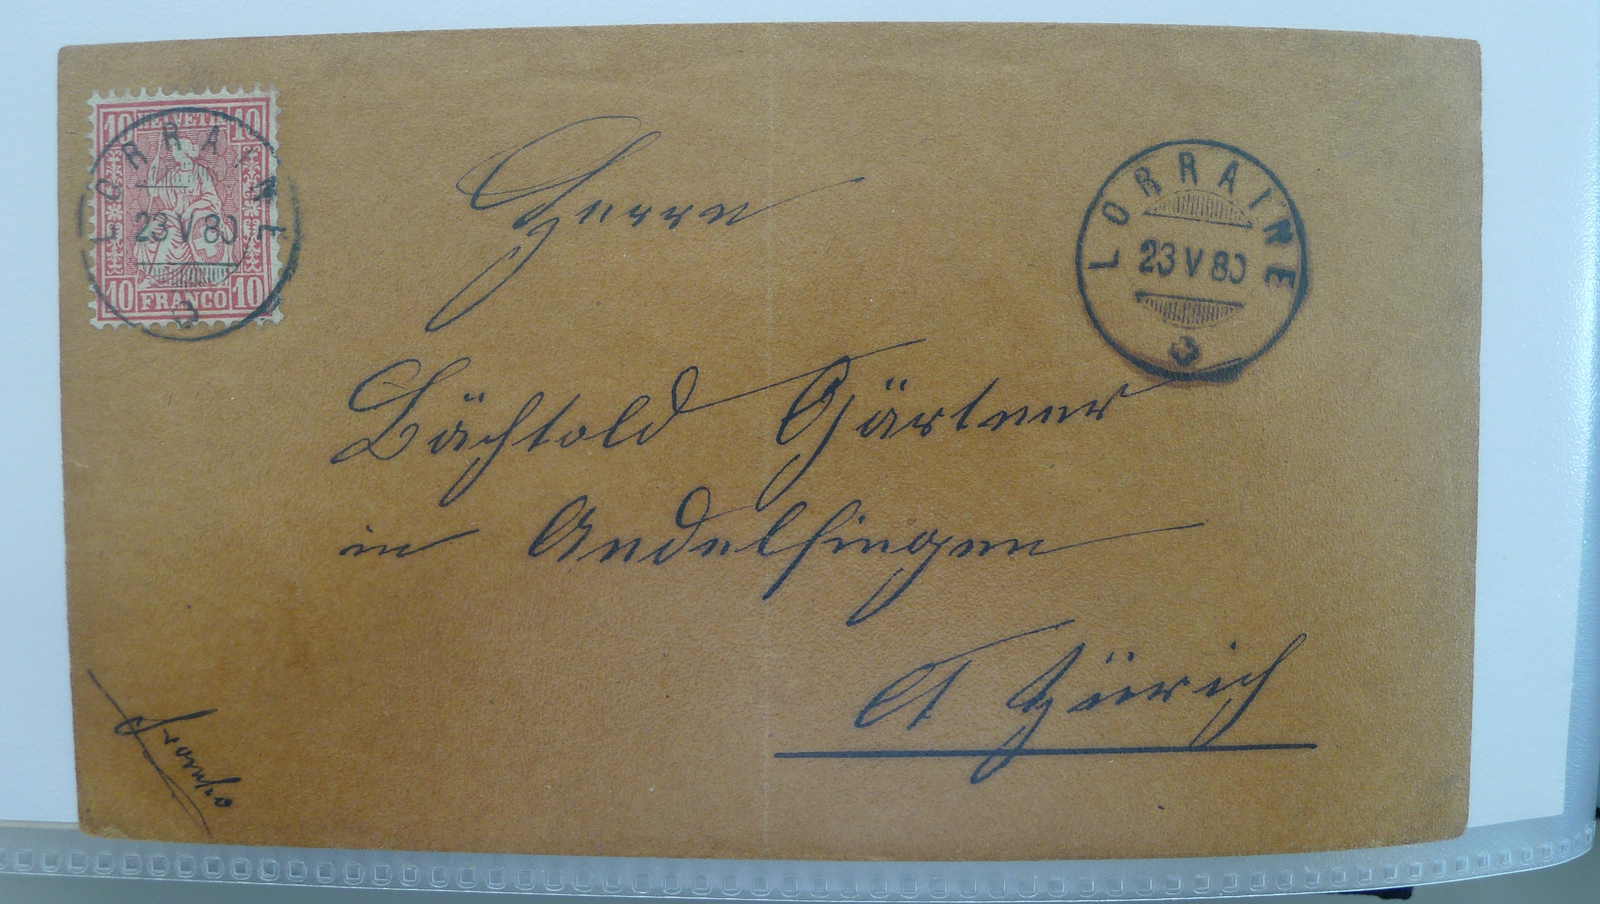 10 HELVETIA 10
LORRAINE
23 V 80
10 FRANCO 10
LORRAINE
23 V 80
Herrn
Bächtold Gärtner
in Andelfingen
Ct Zürich
Franko